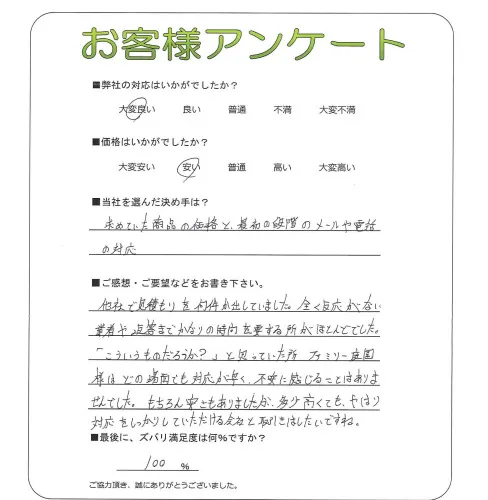 お客様アンケート
■弊社の対応はいかがでしたか?
大変良い 良い 普通 不満 大変不満
■価格はいかがでしたか?
大変安い 安い 普通 高い 大変高い
■当社を選んだ決め手は?
求めていた商品の価格と、最初の段階のメールや電話
の対応
■ご感想・ご要望などをお書き下さい。
他社で見積もりを何件か出していました。全く反応がない
業者や返答までかなりの時間を要する所がほとんどでした。
「こういうものだろうか?」と思っていた所 ファミリー庭園
様はどの場面でも対応が早く、不安に感じることはありま
せんでした。もちろん安さもありましたが、多少高くても、やはり
対応をしっかりしていただける会社と取引きはしたいですね。
■最後に、ズバリ満足度は何%ですか?
100 %
ご協力頂き、誠にありがとうございました。